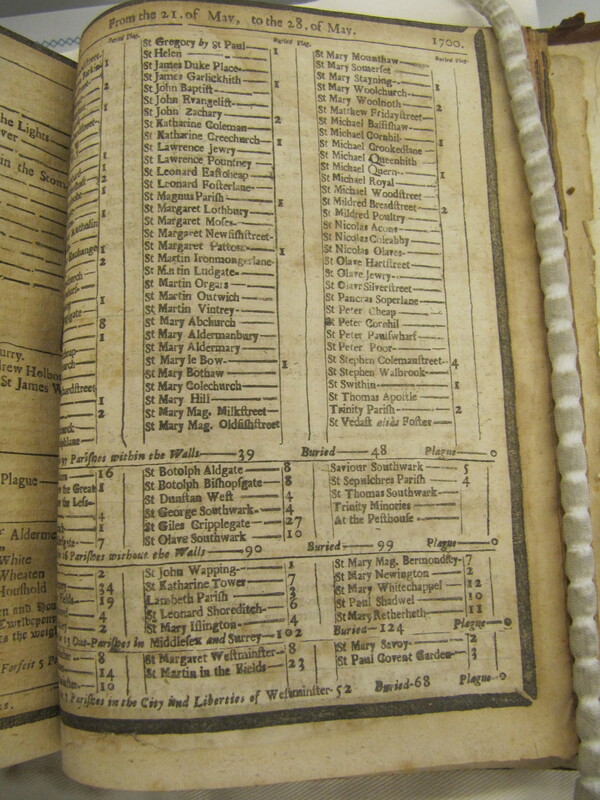 From the 21. of May, to the 28. of May. 1700.
Buried Plag. Buried Plag. Buried Plag.
St Gregory by St Paul 1
St Helen
St James Duke Place
St James Garlickhith 1
St John Baptist
St John Evangelist
St John Zachary 2
St Katharine Coleman
St Katharine Creechurch 1
St Lawrence Jewry
St Lawrence Pountney
St Leonard Eastcheap
St Leonard Fosterlane
St Magnus Parish
St Margaret Lothbury 1
St Margaret Moses
St Margaret Newfishstreet
St Margaret Pattons 1
St Martin Ironmongerlane
St Martin Ludgate
St Martin Orgars
St Martin Outwich
St Martin Vintrey
St Mary Abchurch
St Mary Aldermanbury
St Mary Aldermary
St Mary le Bow 1
St Mary Bothaw
St Mary Colechurch
St Mary Hill
St Mary Mag. Milkstreet
St Mary Mag. Oldfishstreet
St Mary Mounthaw
St Mary Somerset
St Mary Stayning
St Mary Woolchurch 1
St Mary Woolnoth
St Matthew Fridaystreet 2
St Michael Bassishaw
St Michael Cornhil
St Michael Crookedlane 1
St Michael Queenhith
St Michael Quern
St Michael Royal 1
St Michael Woodstreet
St Mildred Breadstreet
St Mildred Poultry 2
St Nicolas Acons
St Nicolas Coleabby
St Nicolas Olaves
St Olave Hartstreet
St Olave Jewry
St Olave Silverstreet
St Pancras Soperlane
St Peter Cheap
St Peter Cornhil
St Peter Paulswharf
St Peter Poor
St Stephen Colemanstreet 4
St Stephen Walbrook
St Swithin 1
St Thomas Apostle
Trinity Parish 2
St Vedast alias Foster
97 Parishes within the Walls 39 Buried 48 Plague 0
St Botolph Aldgate 8
St Botolph Bishopsgate 8
St Dunstan West 4
St George Southwark 4
St Giles Cripplegate 27
St Olave Southwark 10
Saviour Southwark 5
St Sepulchres Parish 4
St Thomas Southwark
Trinity Minories
At the Pesthouse
16 Parishes without the Walls 90 Buried 99 Plague 0
St John Wapping 1
St Katharine Tower 7
Lambeth Parish 3
St Leonard Shoreditch 6
St Mary Islington 4
St Mary Mag. Bermondsey 7
St Mary Newington 2
St Mary Whitechappel 12
St Paul Shadwel 10
St Mary Retherheth 11
Out-Parishes in Middlesex and Surrey 102 Buried 124 Plague 0
St Margaret Westminster 8
St Martin in the Fields 23
St Mary Savoy 2
St Paul Covent Garden 3
Parishes in the City and Liberties of Westminster 52 Buried 68 Plague 0